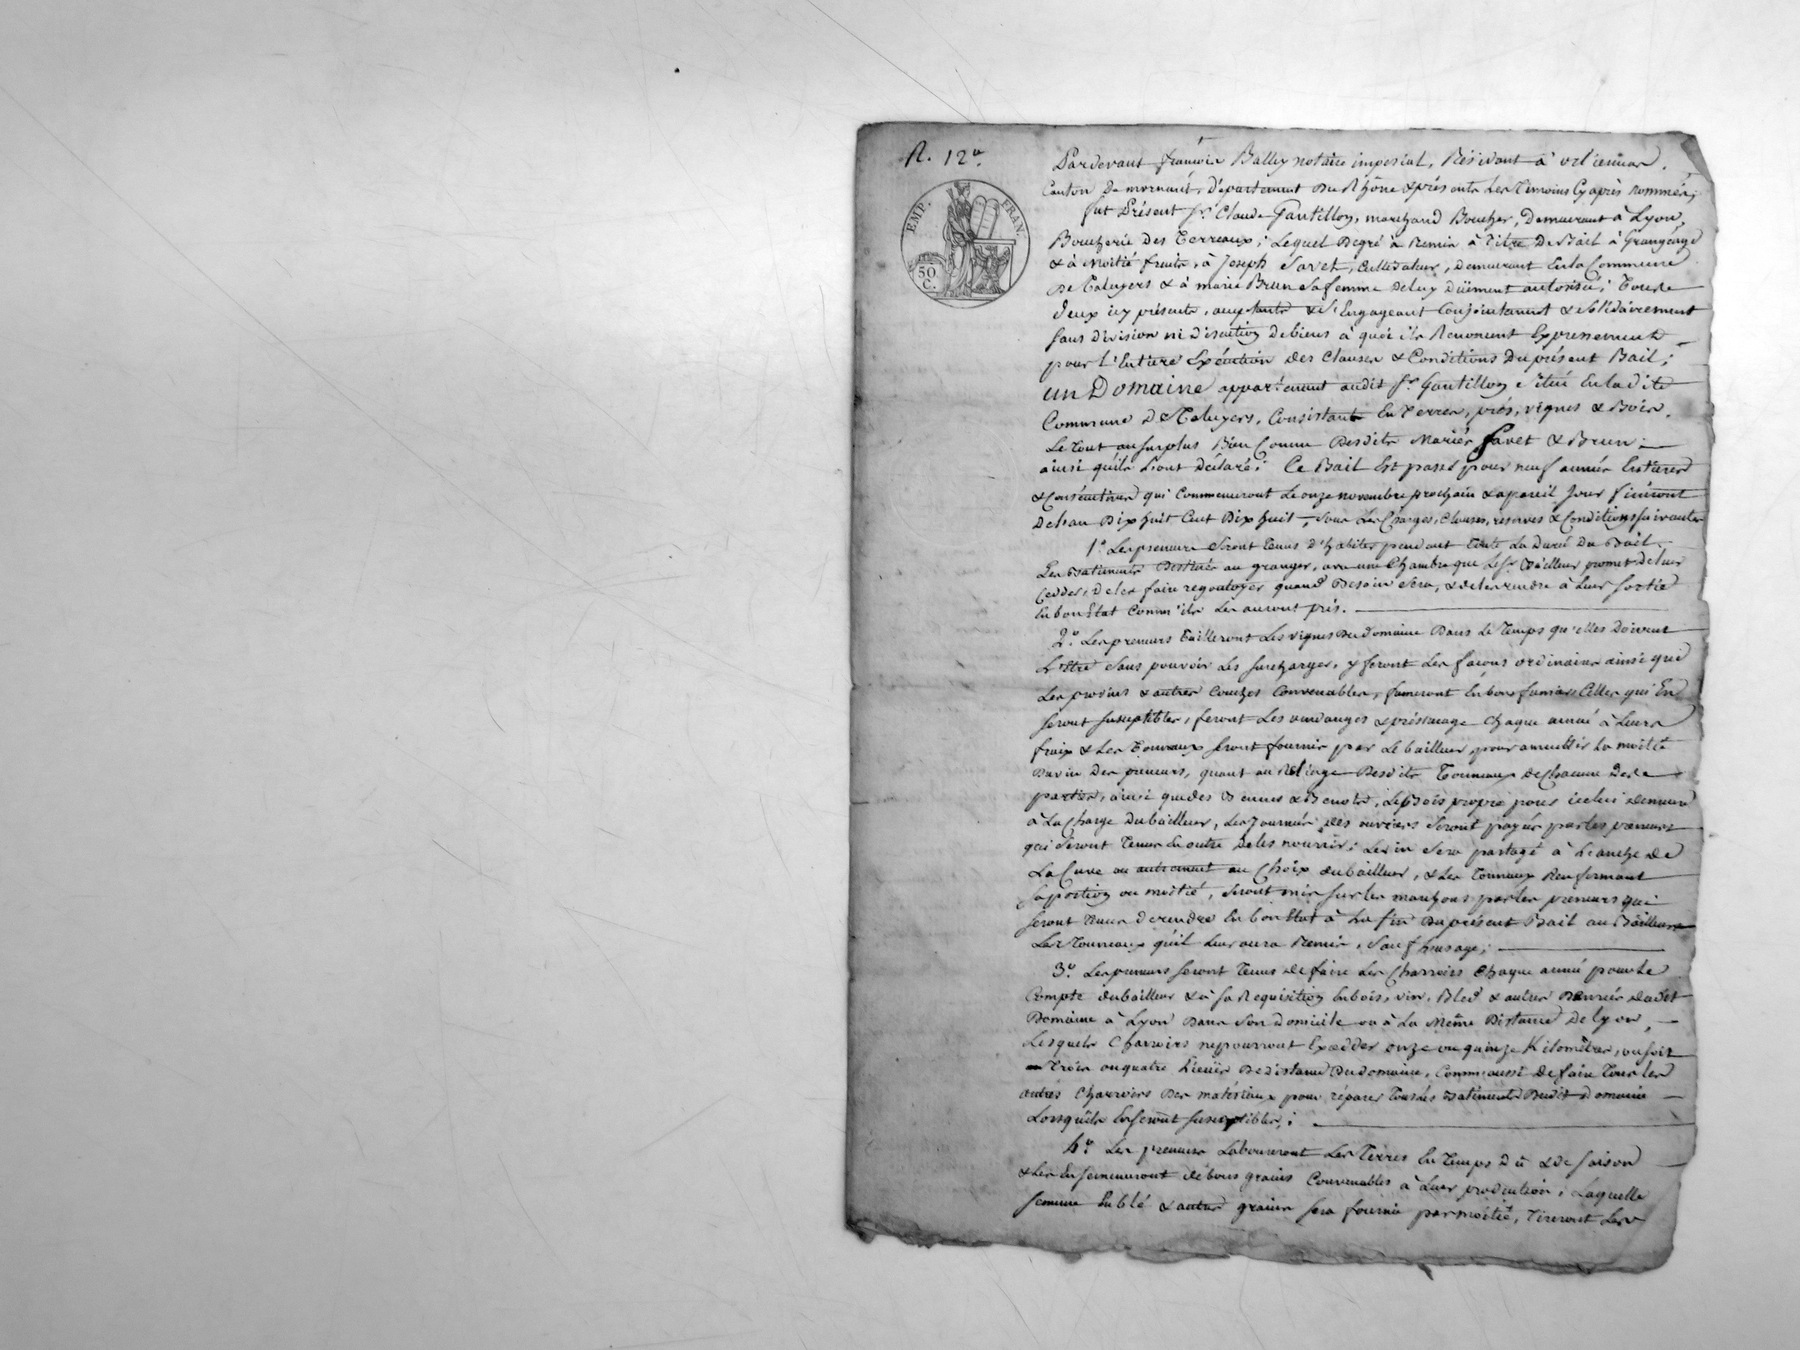 R. 12e.
EMP. FRAN.
50
C.
Pardevant françois Bally notaire imperial, Résidant à orliennas.
Canton de mornant, département du Rhône & présents les Témoins cy après nommés,
fut Présent Sr. Claude Gantillon, marchand Boucher, Demeurant à Lyon,
Boucherie des Terreaux; Lequel de gré à Remis à Titre de Bail à Grangéage
& à Moitié fruits, à Joseph Favet, Cultivateur, demeurant En la Commune
de Taluyers & à marie Brun sa femme de luy dûement autorisée; Tous le
deux icy présents, acceptants & s'Engageant Conjointement & solidairement
sans division ni discution de biens à quoi ils Renoncent Expressement
pour l'Entiere Exécution des Clauses & Conditions du présent Bail;
un Domaine appartenant audit Sr. Gantillon situé En la dite
Commune de Taluyers, Consistant En Terres, prés, vignes & Bois.
Le Tout au surplus Bien Connu desdits Mariés Favet & Brun
ainsi qu'ils L'ont déclaré; Ce Bail Est passé pour neuf années Entieres
& Consécutives qui Commenceront Le onze novembre prochain & à pareil Jour finiront
de L'an Dix huit Cent Dix huit, sous Les Charges, Clauses, reserves & Conditions suivantes
1.° Les preneurs seront Tenus d'habiter pendant Toute La Durée du Bail
Les Batiments Destinés au granger, avec une Chambre que Le Sr. Bailleur promet de leur
Ceder; de les faire regoutoyer quand Besoin sera, & de les rendre à Leur sortie
En bon Etat Comm'ils Les auront pris.
2.° Les preneurs Tailleront Les vignes du domaine Dans le Temps qu'elles Doivent
L'être sans pouvoir Les surcharger, y feront Les façons ordinaires ainsi que
Les provins & autres Couches Convenables, fumeront En bons fumiers Celles qui En
seront susceptibles, feront Les vendanges & préssurage Chaque année à Leurs
fraix & Les Tonneaux seront fournis par Le bailleur pour la moitié
Du vin Des preneurs, quant au Reliage Desdits Tonneaux de Chacune des
parties, ainsi que des Bennes & Benots, Le Bois propre pour icelui demeure
à La Charge du bailleur, Les Journées des ouvriers seront payées par les preneurs
qui seront Tenus En outre de les nourrir; Le vin sera partagé à L'anche de
La Cuve ou autrement au Choix du bailleur, & Les Tonneaux Renfermant
sa portion ou moitié, seront mis sur Les par les preneurs qui
seront Tenus de rendre En bon Etat à La fin Du présent Bail au Bailleur
Les Tonneaux qu'il Leur aura Remis, sauf L'usage;
3.° Les preneurs seront Tenus de faire Les Charrois Chaque année pour Le
Compte du bailleur & à sa Requisition En bois, vin, Bled & autres Denrées dudit
Domaine à Lyon Dans son domicile ou à La Même Distance De Lyon,
Lesquels Charrois ne pourront Excedder onze ou quinze Kilomètres, ou soit
Trois ou quatre Lieües de distance Du domaine, Comm'aussi de faire Tous les
autres Charrois Des matériaux pour réparer Tous les Batiments Dudit Domaine
Lorsqu'ils En seront susceptibles;
4.° Les Preneurs Laboureront Les Terres En Temps dû & de saison
& Les Ensemenceront de bons grains Convenables à Leur production; Laquelle
semence En blé & autres grains sera fournie par moitié, Tireront Les